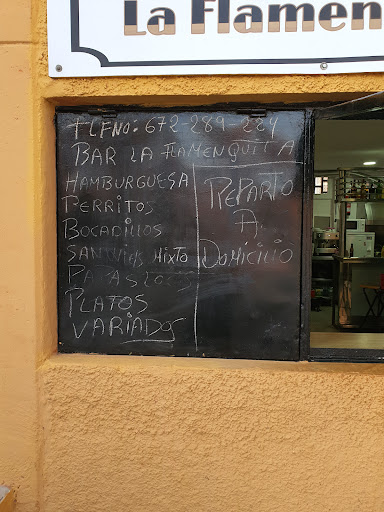 La Flamen
TLFNO: 672-289-224
BAR LA FLAMENQUITA
HAMBURGUESA
PERRITOS
BOCADILLOS
SANDWICHS MIXTO
PAPAS LOCAS
PLATOS
VARIADOS
REPARTO
A
DOMICILIO